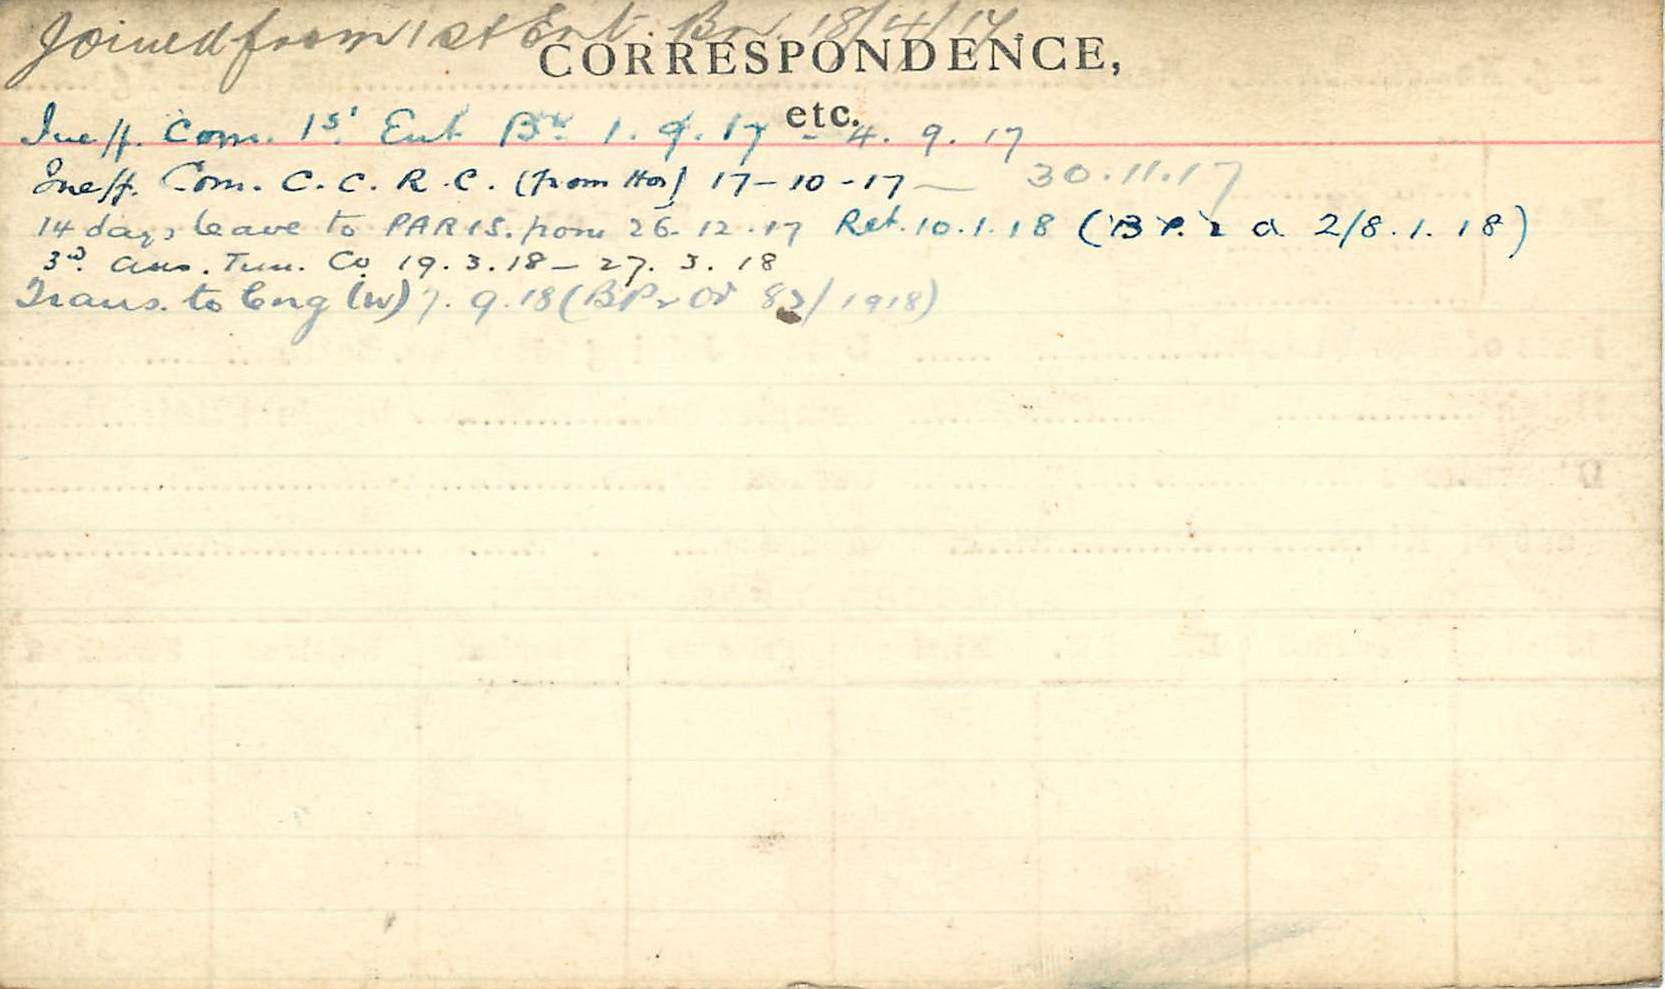 Joined from 1st Ent. Bn. 18/4/17.
CORRESPONDENCE,
etc.
Ineff. Com. 1st. Ent. Bn. 1. 9. 17 - 4. 9. 17
Ineff. Com. C. C. R. C. (from Hos) 17-10-17 — 30.11.17
14 days leave to PARIS. from 26-12.17 Ret. 10.1.18 (B P. 2 O. 2/8.1.18)
3rd. Aus. Tun. Co 19.3.18 - 27. 3. 18
Trans. to Eng (W) 7. 9.18 (BP2 Or 83/1918)